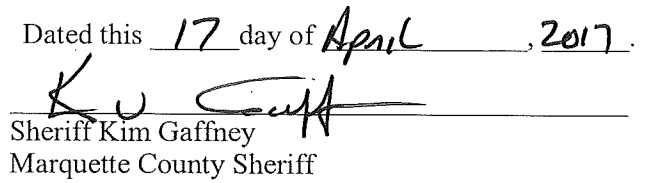 Dated this 17 day of April, 2017.
Sheriff Kim Gaffney
Marquette County Sheriff